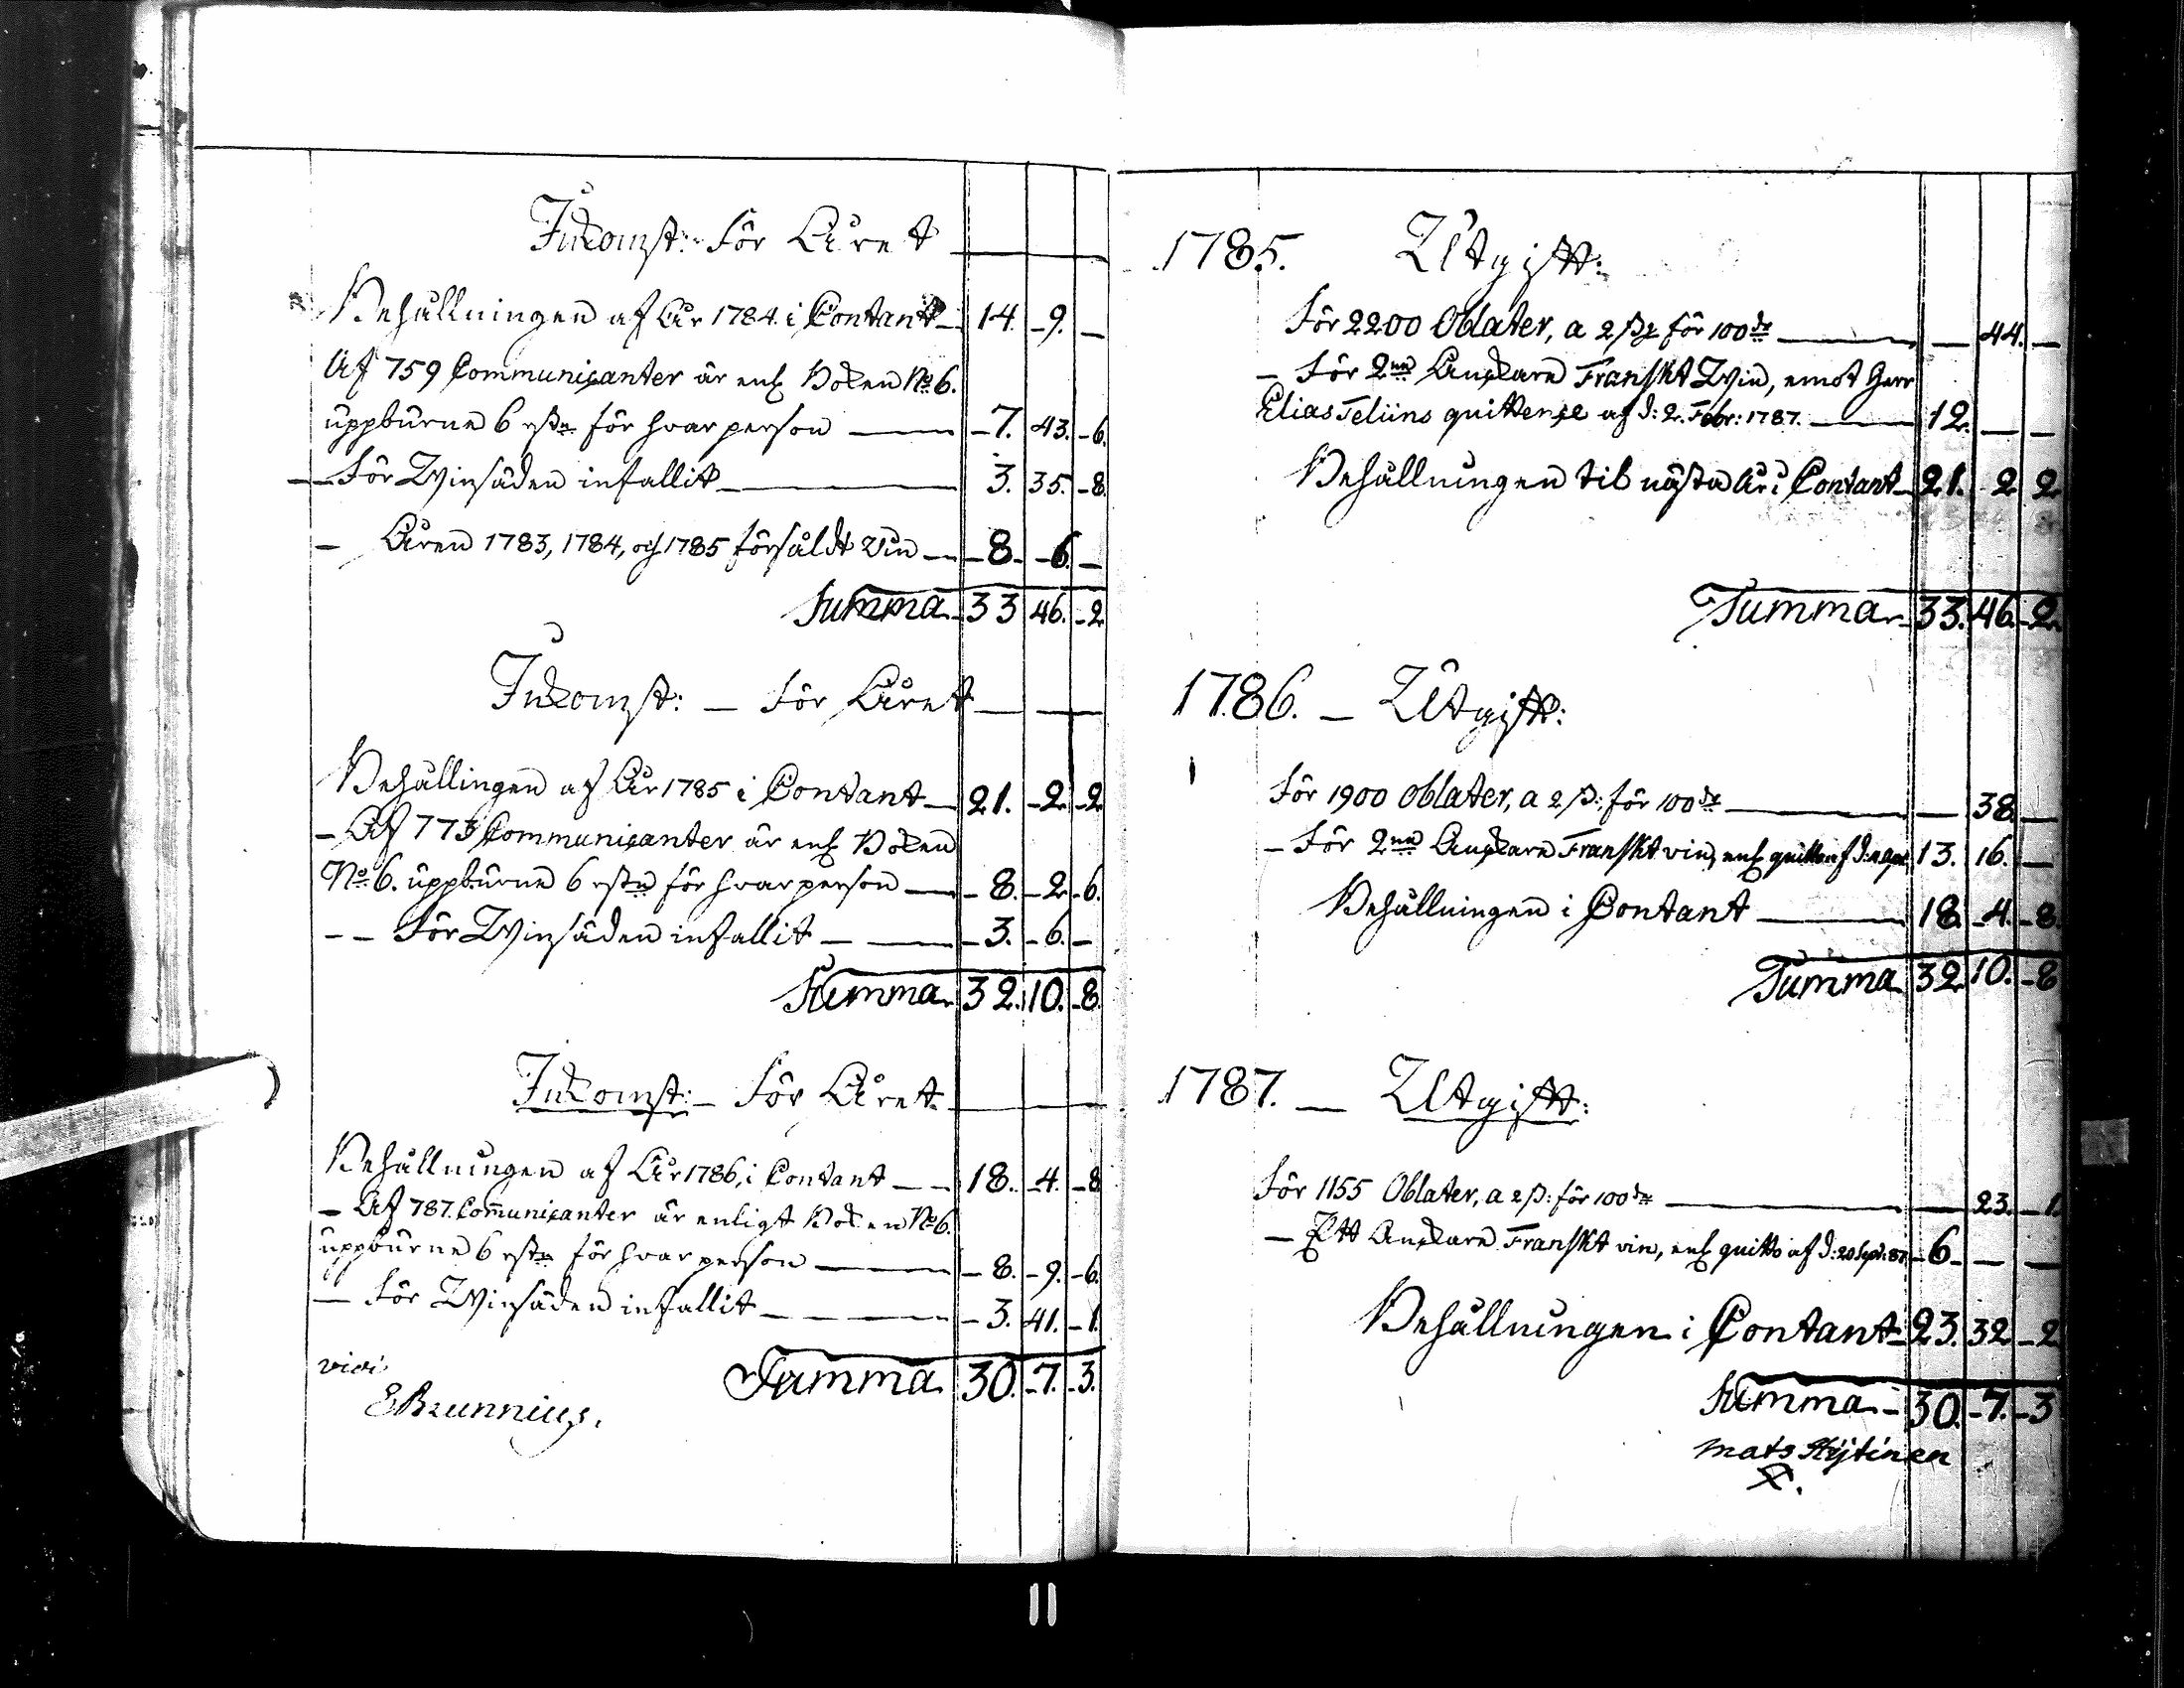 Inkomst: För Året
Behållningen af År 1784. i Contant — 14. -9. —
Af 759 Communicanter är enl. Boken No 6.
uppburne 6 rst. för hvar person — -7. 43. -6.
— För Winsäden infallit — 3. 35. -8.
— Åren 1783, 1784, och 1785 försåldt Vin — -8. -6. —
Summa 33 46. -2
Inkomst: — För Året
Behållingen af År 1785 i Contant — 21. -2 -2
— Af 773 Communicanter är enl. Boken
No 6. uppburne 6 rst. för hvar person — -8. -2 -6.
— — För Winsäden infallit — — -3. -6. —
Summa 32. 10. -8.
Inkomst: — För Året
Behållningen af År 1786, i Contant — — 18. -4. -8
— Af 787. Comunicanter är enligt Boken No 6.
uppburne 6 rst. för hvar person — -8. -9. -6.
— För Winsäden infallit — — — -3. 41. -1.
vidi
Summa 30. -7. -3.
EBrunnius.
1785. Utgift:
För 2200 Oblater, a 2 ß för 100de — — 44. —
— För 2ne Anckare Franskt Win, emot Herr
Elias Teliins quittence af d: 2. Febr: 1787. — 12. — —
Behållningen til nästa år i Contant — 21. 2 2
Summa 33. 46. -2.
1786. — Utgift:
För 1900 Oblater, a 2 ß: för 100de — — 38. —
— För 2ne Anckare Franskt vin, enl. quitto af d: 13. 16. —
Behållningen i Contant — 18. -4. -8.
Summa 32 10. -8
1787. — Utgift:
För 1155 Oblater, a 2 ß: för 100de — — 23. -1.
— Ett Anckare Franskt vin, enl. quitto af d: 20 Sept: 87. -6. — —
Behållningen i Contant — 23. 32 -2
Summa — 30. -7. -3
Mats Hytinen
X.
11